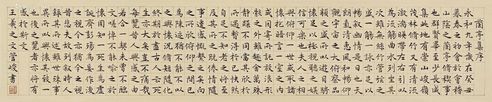 蘭亭集序
永和九年歲在癸丑
暮春之初會于會稽
山陰之蘭亭脩禊事
也群賢畢至少長咸
集此地有崇山峻嶺
茂林脩竹又有清流
激湍映帶左右引以
為流觴曲水列坐其
次雖無絲竹管弦之
盛一觴一詠亦足以
暢敘幽情是日也天
朗氣清惠風和暢仰
觀宇宙之大俯察品
類之盛所以遊目騁
懷足以極視聽之娛
信可樂也夫人之相
與俯仰一世或取諸
懷抱悟言一室之內
或因寄所託放浪形
骸之外雖趣舍萬殊
靜躁不同當其欣於
所遇暫得於己快然
自足不知老之將至
及其所之既倦情隨
事遷感慨係之矣向
之所欣俯仰之間已
為陳跡猶不能不以
之興懷況脩短隨化
終期於盡古人云死
生亦大矣豈不痛哉
每覽昔人興感之由
若合一契未嘗不臨
文嗟悼不能喻之於
懷固知一死生為虛
誕齊彭殤為妄作後
之視今亦猶今之視
昔悲夫故列敘時人
錄其所述雖世殊事
異所以興懷其致一
也後之覽者亦將有
感於斯文
王羲之文